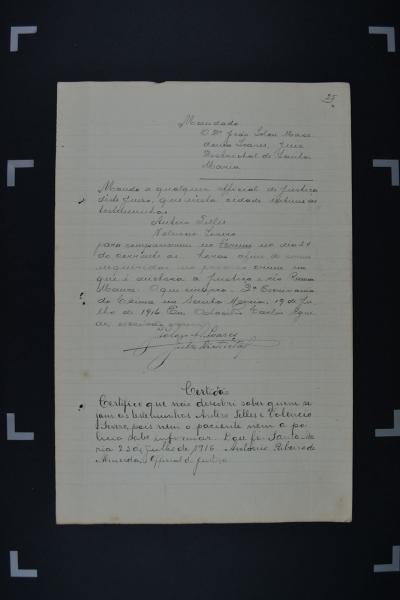 25
Mandado
O Dr. João Solon Mace-
donia Soares, Juiz
Districtal de Santa
Maria
Mando a qualquer official de Justiça
deste Juizo, que nesta cidade intime as
testemunhas
Antero Telles
para comparecerem no dia 24
do corrente as horas afim de serem
inqueridas no processo crime em
que é autora a Justiça e réo
O que cumpra. 2º
do Crime em Santa Maria, 19 de Ju-
lho de 1916. Eu, Octacilio Carlos
escrivão
Solon M. Soares
Juiz Districtal
Certidão
Certifico que não descobri saber quem se-
jam as testemunhas Antero Telles e
pois nem o paciente nem a po-
licia sabe informar. E que fé. Santa Ma-
ria 23 de Julho de 1916. Antonio Ribeiro de
Almeida, Official de Justiça